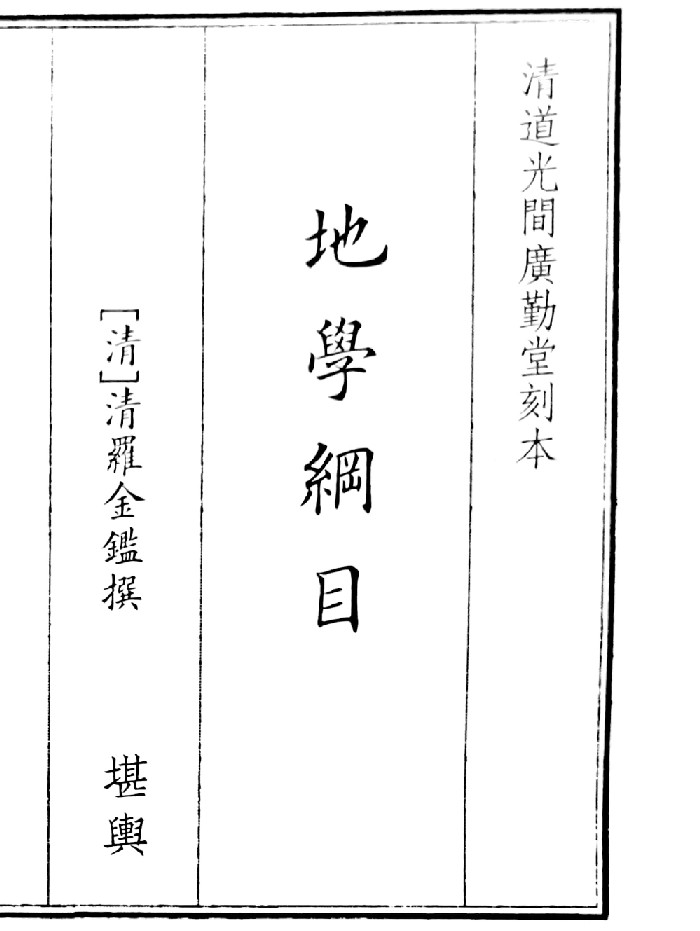 清道光間廣勤堂刻本
地學綱目
[清]清羅金鑑撰
堪輿